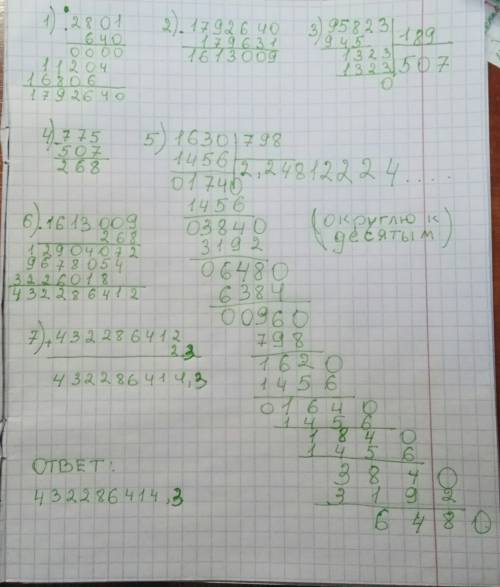 1) .2801
640
0000
11204
16806
1792640
2) .1792640
179631
1613009
3) 95823 | 189
945 | 507
1323
1323
0
4) 775
507
268
5) 1630 | 798
1456 | 2,24812224.....
01740
1456
03840
3192
06480
6384
00960
798
1620
1456
01640
1456
1840
1456
3840
3192
6480
(округлю к
десятым)
6) .1613009
268
12904072
9678054
3226018
432286412
7) +432286412
2.3
432286414,3
ОТВЕТ:
432286414,3